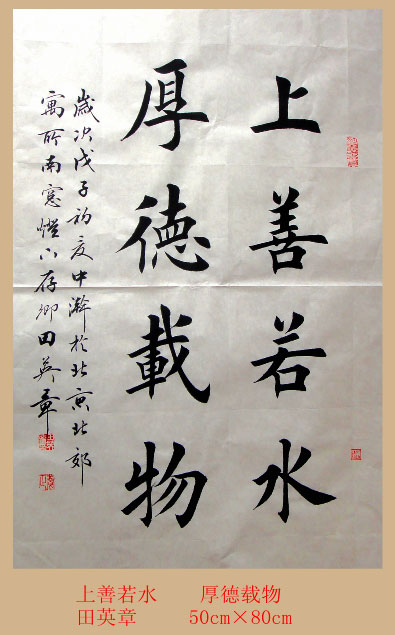 上善若水
厚德載物
歲次戊子初夏中澣於北京北郊
寓所南窓燈下存卿田英章
上善若水 厚德载物
田英章 50cm×80cm